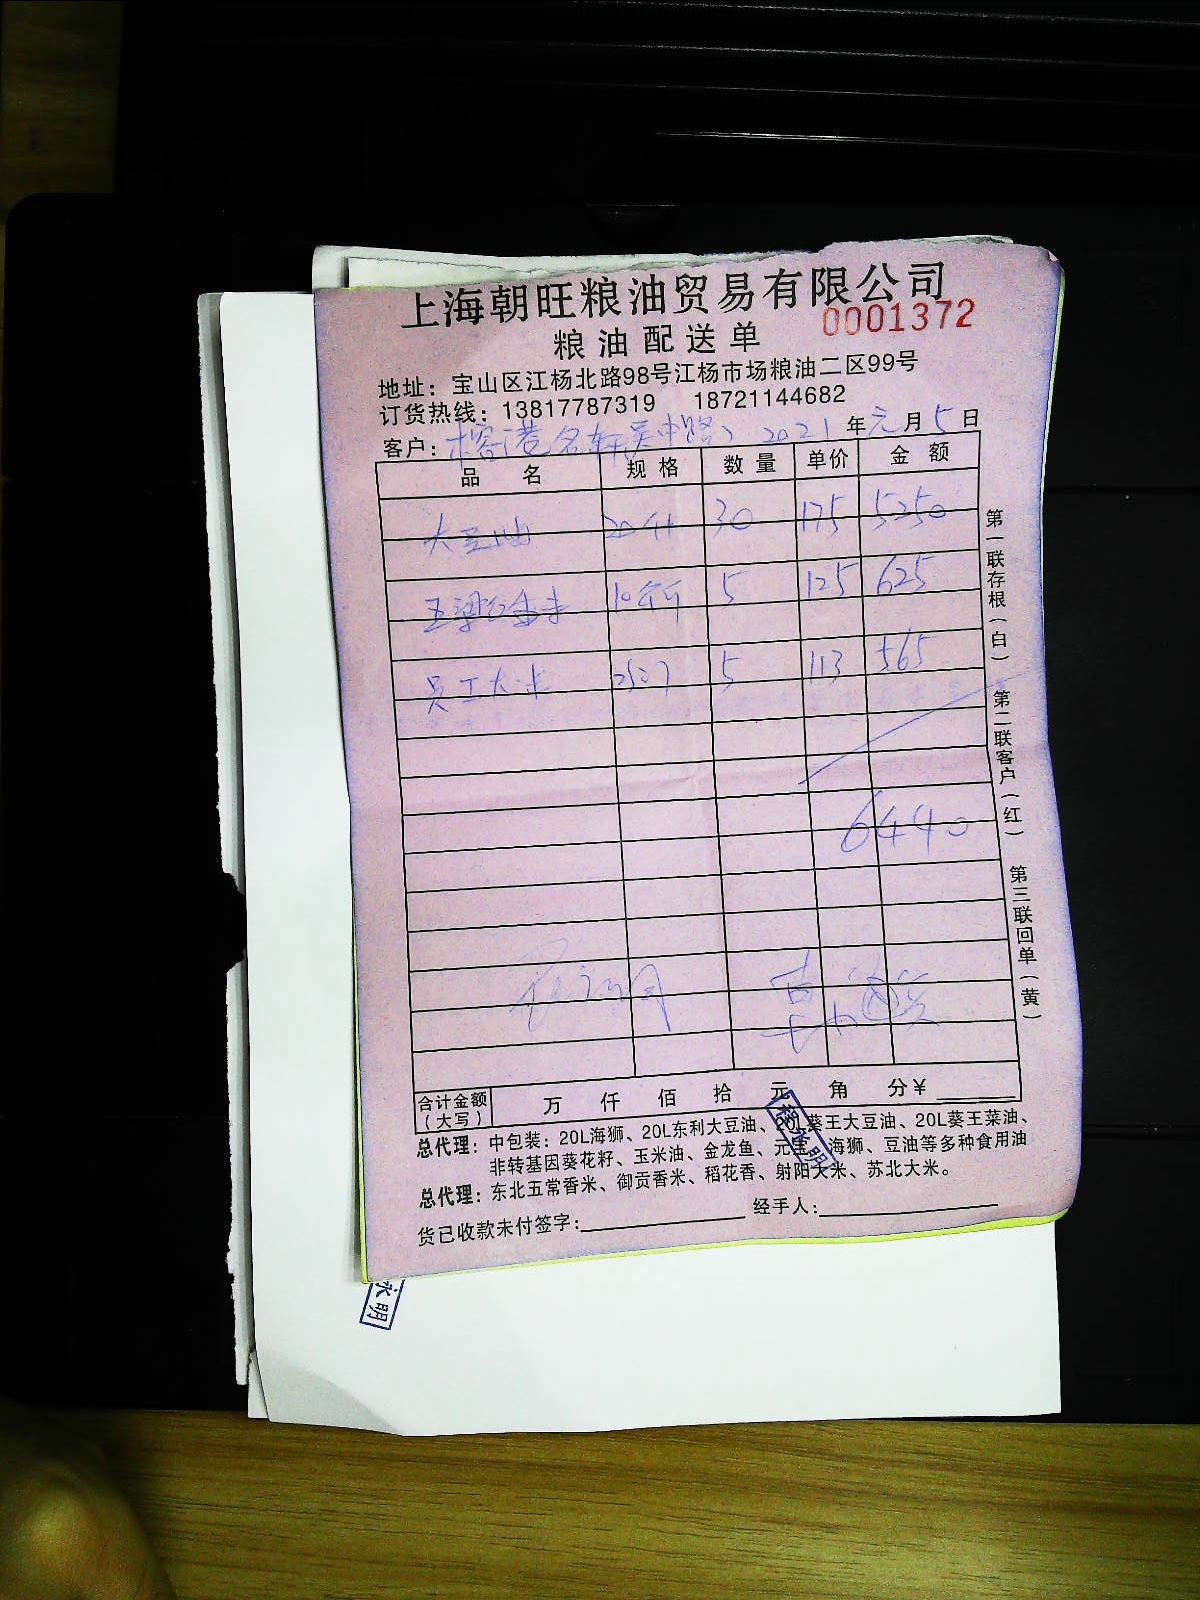 上海朝旺粮油贸易有限公司
0001372
粮油配送单
地址：宝山区江杨北路98号江杨市场粮油二区99号
订货热线：13817787319 18721144682
客户：榕港名轩吴中路） 2021年元月5日
品名 规格 数量 单价 金额
大豆油 20升 30 175 5250
10斤 5 125 625
员工大米 5 113 565
6440
合计金额（大写） 万 仟 佰 拾 元 角 分¥
总代理：中包装：20L海狮、20L东利大豆油、20L葵王大豆油、20L葵王菜油、
非转基因葵花籽、玉米油、金龙鱼、元宝、海狮、豆油等多种食用油
总代理：东北五常香米、御贡香米、稻花香、射阳大米、苏北大米。
货已收款未付签字： 经手人：
第一联存根（白） 第二联客户（红） 第三联回单（黄）
永明